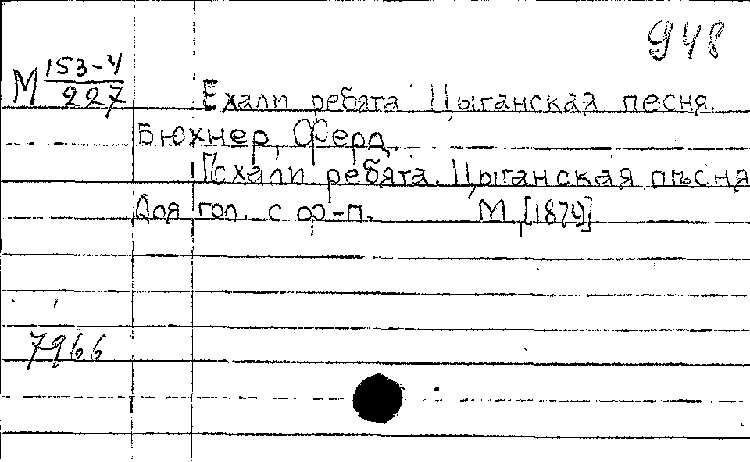 948
М 153-4/227 Ехали ребята Цыганская песня.
Бюхнер, Ферд.
Ехали ребята. Цыганская пѣсня
Для гол. с ф-п. М, [1879]
7966